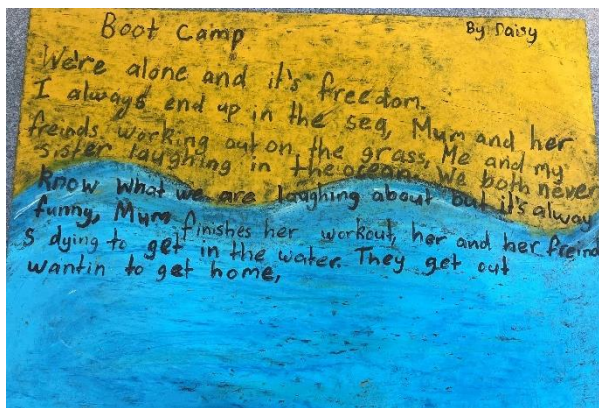 Boot Camp By: Daisy
We're alone and it's freedom.
I always end up in the sea, Mum and her
freinds working out on the grass, Me and my
sister laughing in the ocean. We both never
know what we are laughing about but it's alway
funny, Mum finishes her workout, her and her freind
s dying to get in the water. They get out
wantin to get home,